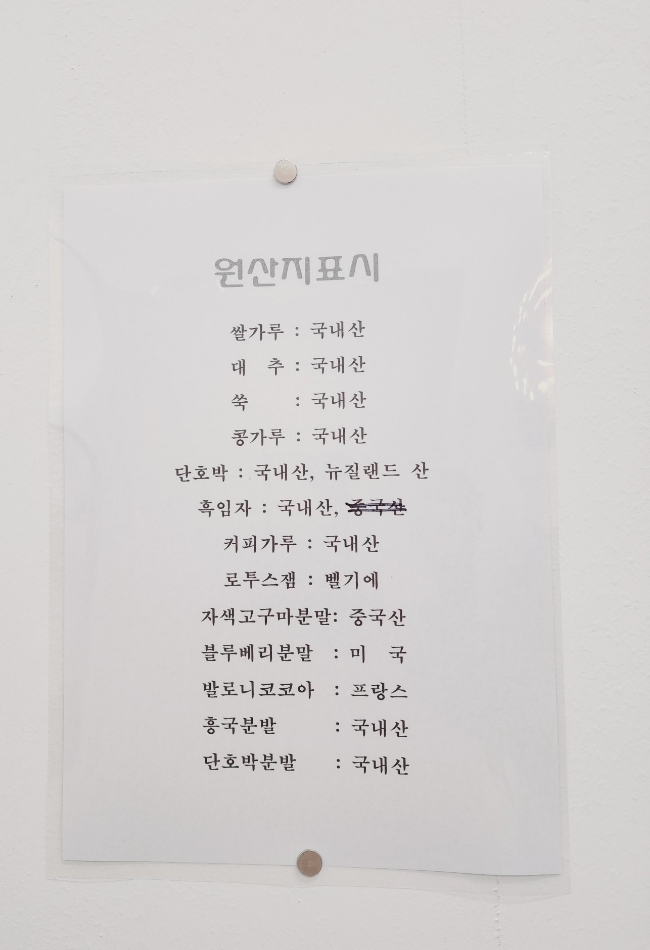 원산지표시
쌀가루 : 국내산
대 추 : 국내산
쑥 : 국내산
콩가루 : 국내산
단호박 : 국내산, 뉴질랜드 산
흑임자 : 국내산, 중국산
커피가루 : 국내산
로투스잼 : 벨기에
자색고구마분말: 중국산
블루베리분말 : 미 국
발로니코코아 : 프랑스
흥국분발 : 국내산
단호박분발 : 국내산